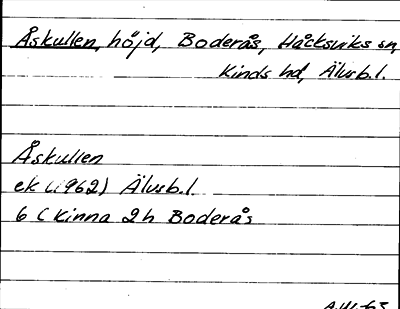 Åskullen, höjd, Boderås, Håcksviks sn,
Kinds hd, Älvsb.l.
Åskullen
ek (1962) Älvsb.l.
6 C Kinna 2h Boderås